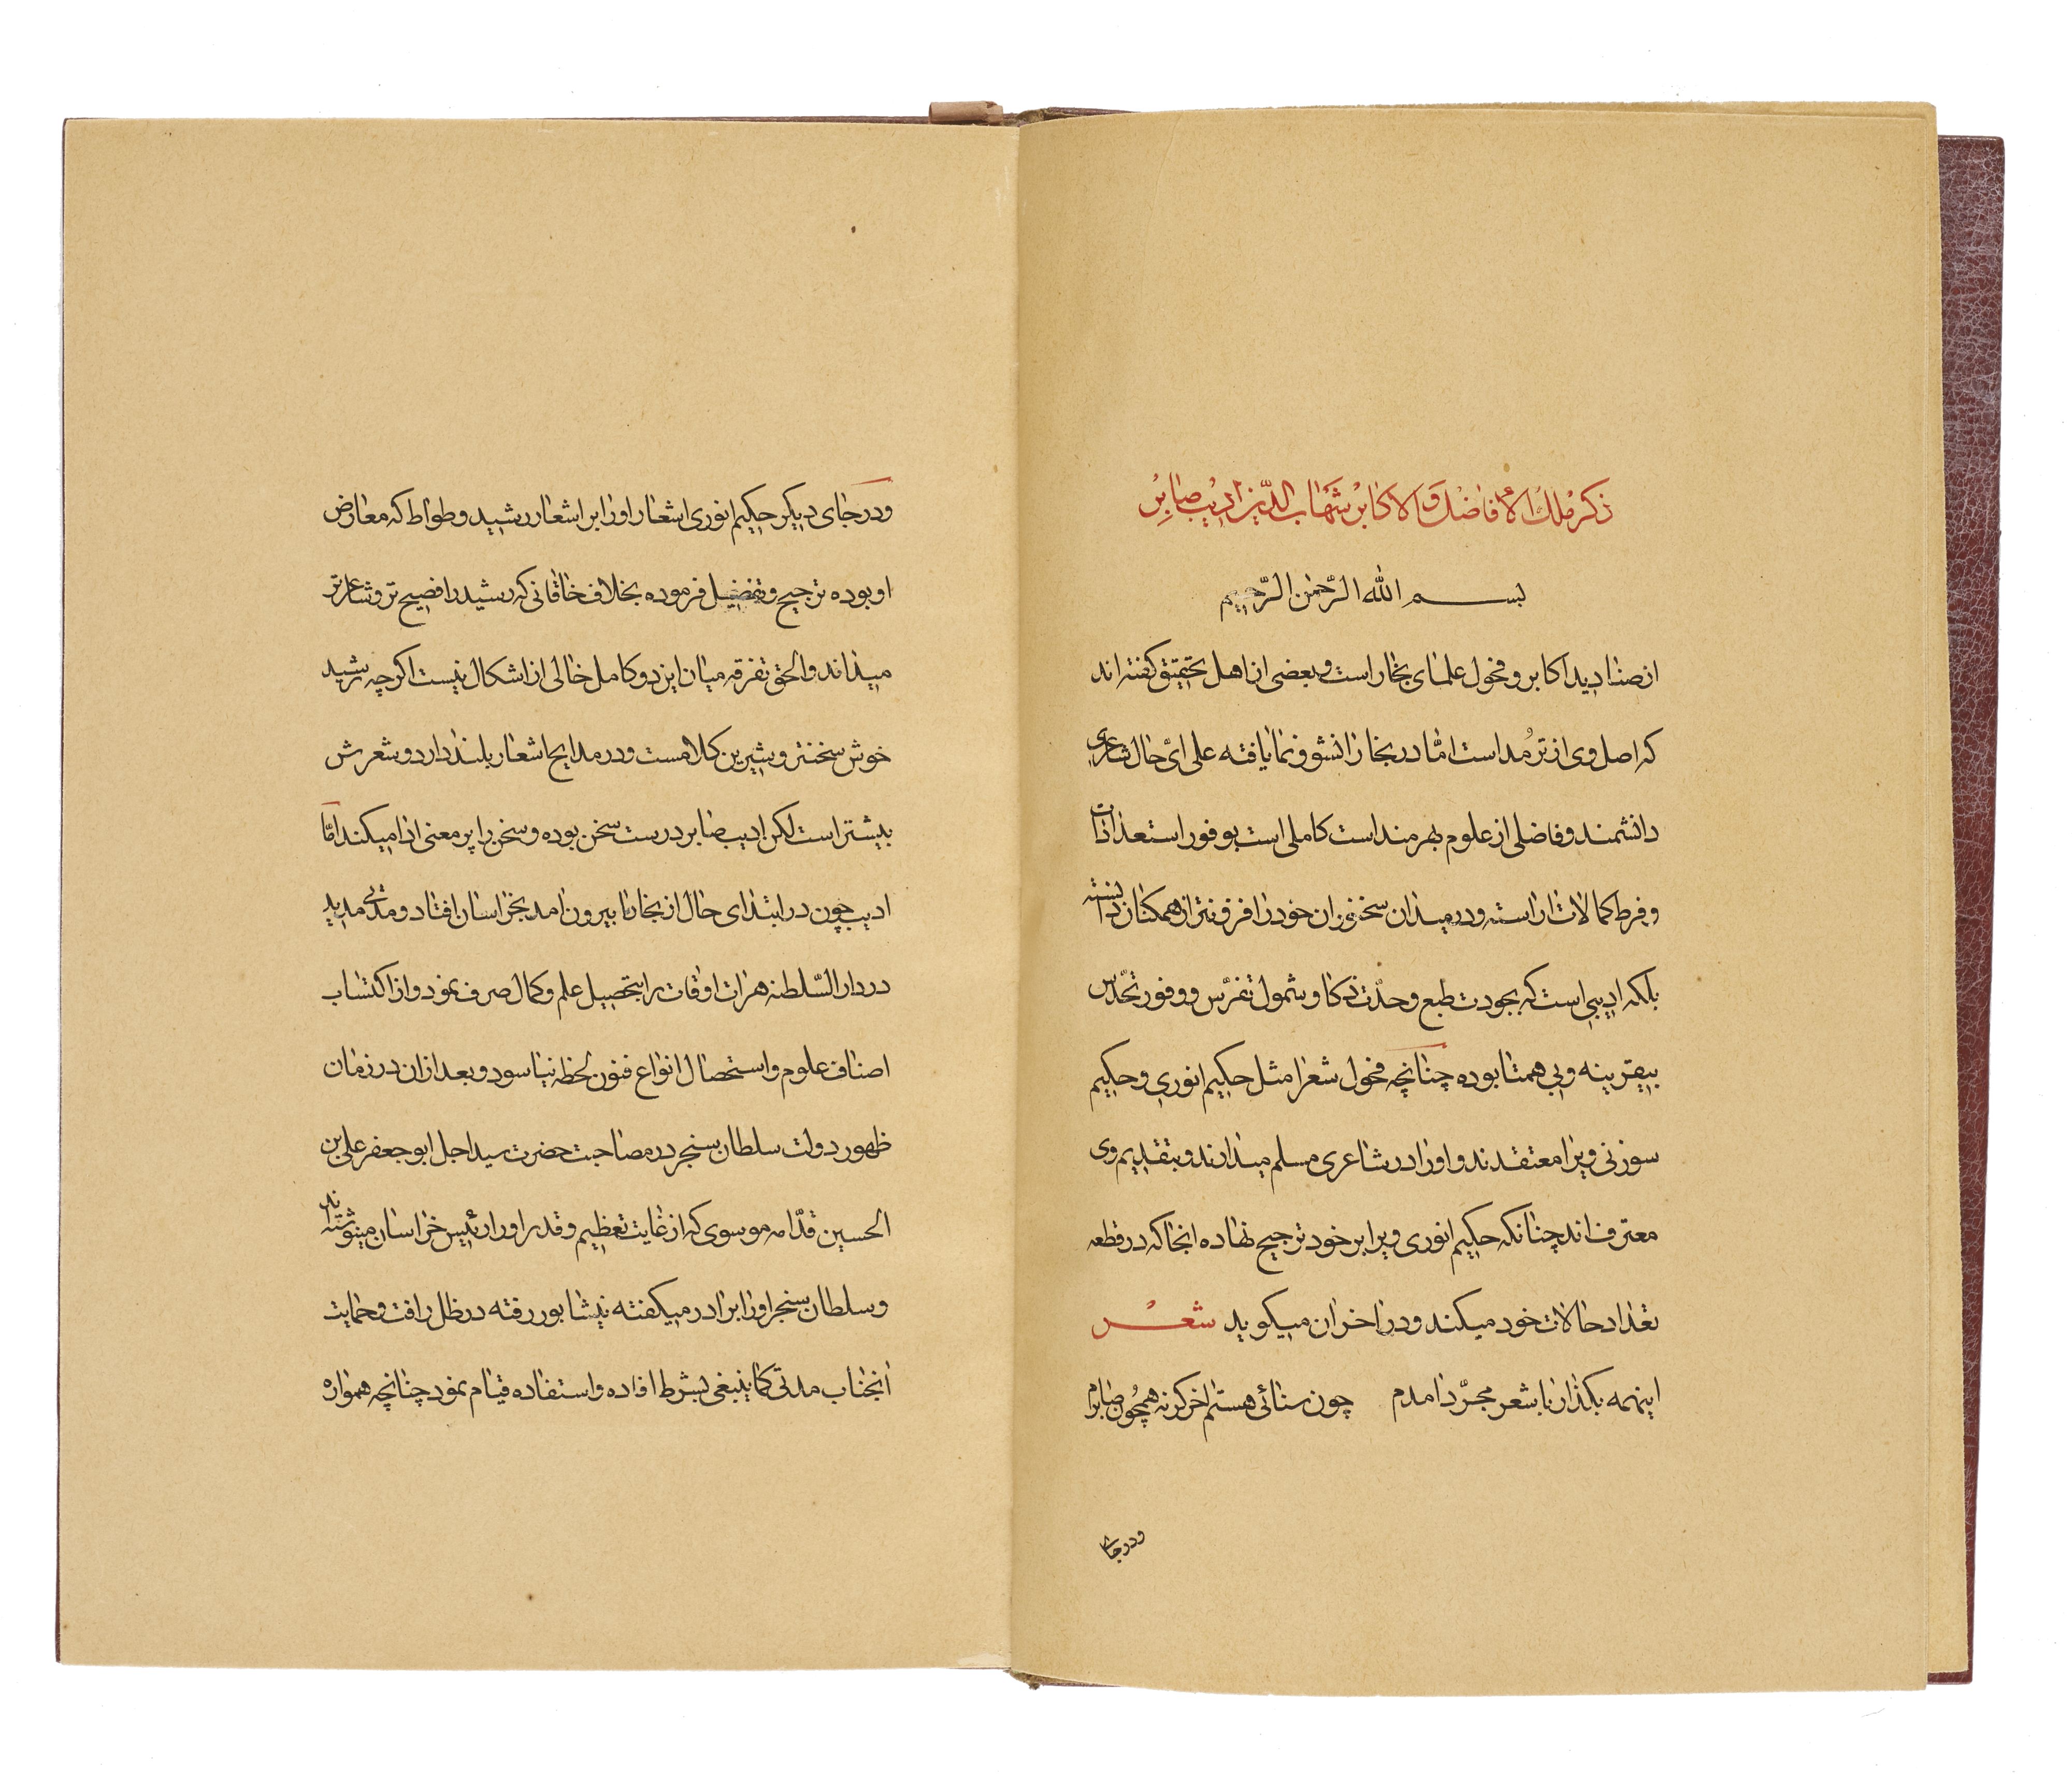 ذکر ملک الافاضل و الاکابر شهاب الدین ادیب صابر
بسم الله الرحمن الرحیم
از صنادید اکابر و فحول علمای بخار است و بعضی از اهل تحقیق کفته اند
که اصل وی از ترمد است اما در بخارا نشو و نما یافته علی ای حال شاعری
دانشمند و فاضلی از علوم بهرمند است کاملی است بوفور استعدادات
و فرط کمالات اراسته و در میدان سخنوران خود را افزونتر از همکنان دانسته
بلکه ادیبی است که بجودت طبع و حدت ذکا و شمول تفرس و وفور تحدس
بیقرینه و بی همتا بوده چنانچه فحول شعرا مثل حکیم انوری و حکیم
سوزنی ویرا معتقدند و اورا در شاعری مسلم میدارند و بتقدیم وی
معترف اند چنانکه حکیم انوری ویرا بر خود ترجیح نهاده انجا که در قطعه
تعداد حالات خود میکند و در اخر ان میکوید شعر
اینهمه بکذار با شعر مجرد امدم چون سنائی هستم اخر کرنه همچون صابرم
ودرجای
و در جای دیکر حکیم انوری اشعار اورا بر اشعار رشید و طواط که معارض
او بوده ترجیح و تفضیل فرموده بخلاف خاقانی که رشید را فصیح تر و شاعرتر
میداند و الحق تفرقه میان این دو کامل خالی از اشکال نیست اکرچه رشید
خوش سخنتر و شیرین کلامست و در مدایح اشعار بلند دارد و شعرش
بیشتر است لکن ادیب صابر درست سخن بوده و سخن را پر معنی ادا میکند اما
ادیب چون در ابتدای حال از بخارا بیرون امد بخراسان افتاد و مدتی مدید
در دار السلطنه هرات اوقات را بتحصیل علم و کمال صرف نمود و از اکتساب
اصناف علوم و استحصال انواع فنون لحظه نیاسود و بعد از ان در زمان
ظهور دولت سلطان سنجر در مصاحبت حضرت سید اجل ابو جعفر علی بن
الحسین قدامه موسوی که از غایت تعظیم و قدر اورا رئیس خراسان مینوشته اند
و سلطان سنجر اورا برادر میکفته نیشابور رفته در ظل رافت و حمایت
انجناب مدتی کما ینبغی بشرط افاده و استفاده قیام نمود چنانچه همواره